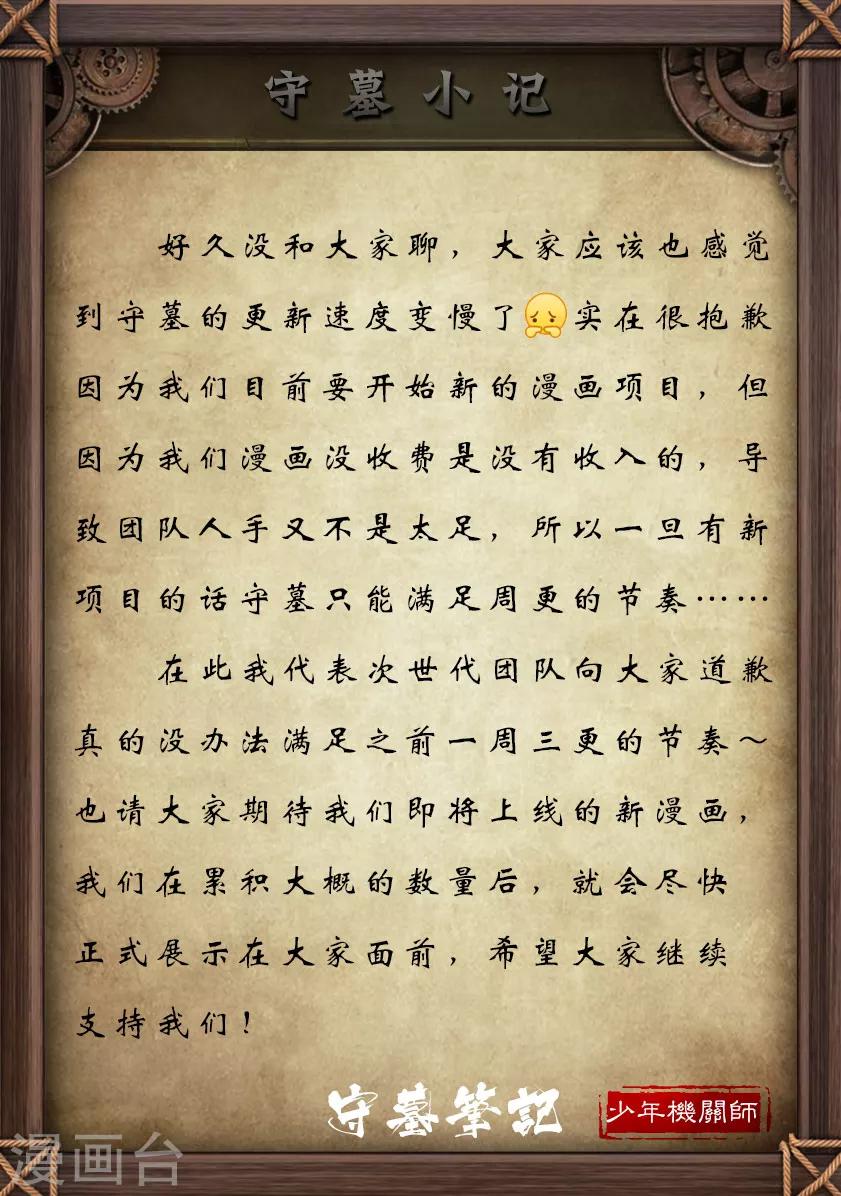 守墓小记
好久没和大家聊，大家应该也感觉
到守墓的更新速度变慢了实在很抱歉
因为我们目前要开始新的漫画项目，但
因为我们漫画没收费是没有收入的，导
致团队人手又不是太足，所以一旦有新
项目的话守墓只能满足周更的节奏……
在此我代表次世代团队向大家道歉
真的没办法满足之前一周三更的节奏～
也请大家期待我们即将上线的新漫画，
我们在累积大概的数量后，就会尽快
正式展示在大家面前，希望大家继续
支持我们！
守墓筆記
少年機關師
漫画台